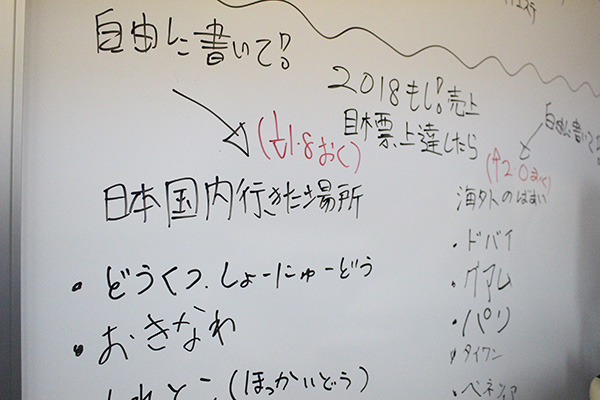 自由に書いて!
2018もし!売上
目標上達したら
自由に書いて
(↓1.8おく)
(↑2.0おく)
日本国内行きた場所
・どうくつ、しょーにゅーどう
・おきなわ
しれとこ(ほっかいどう)
海外のばあい
・ドバイ
・グアム
・パリ
・タイワン
・ベネシア